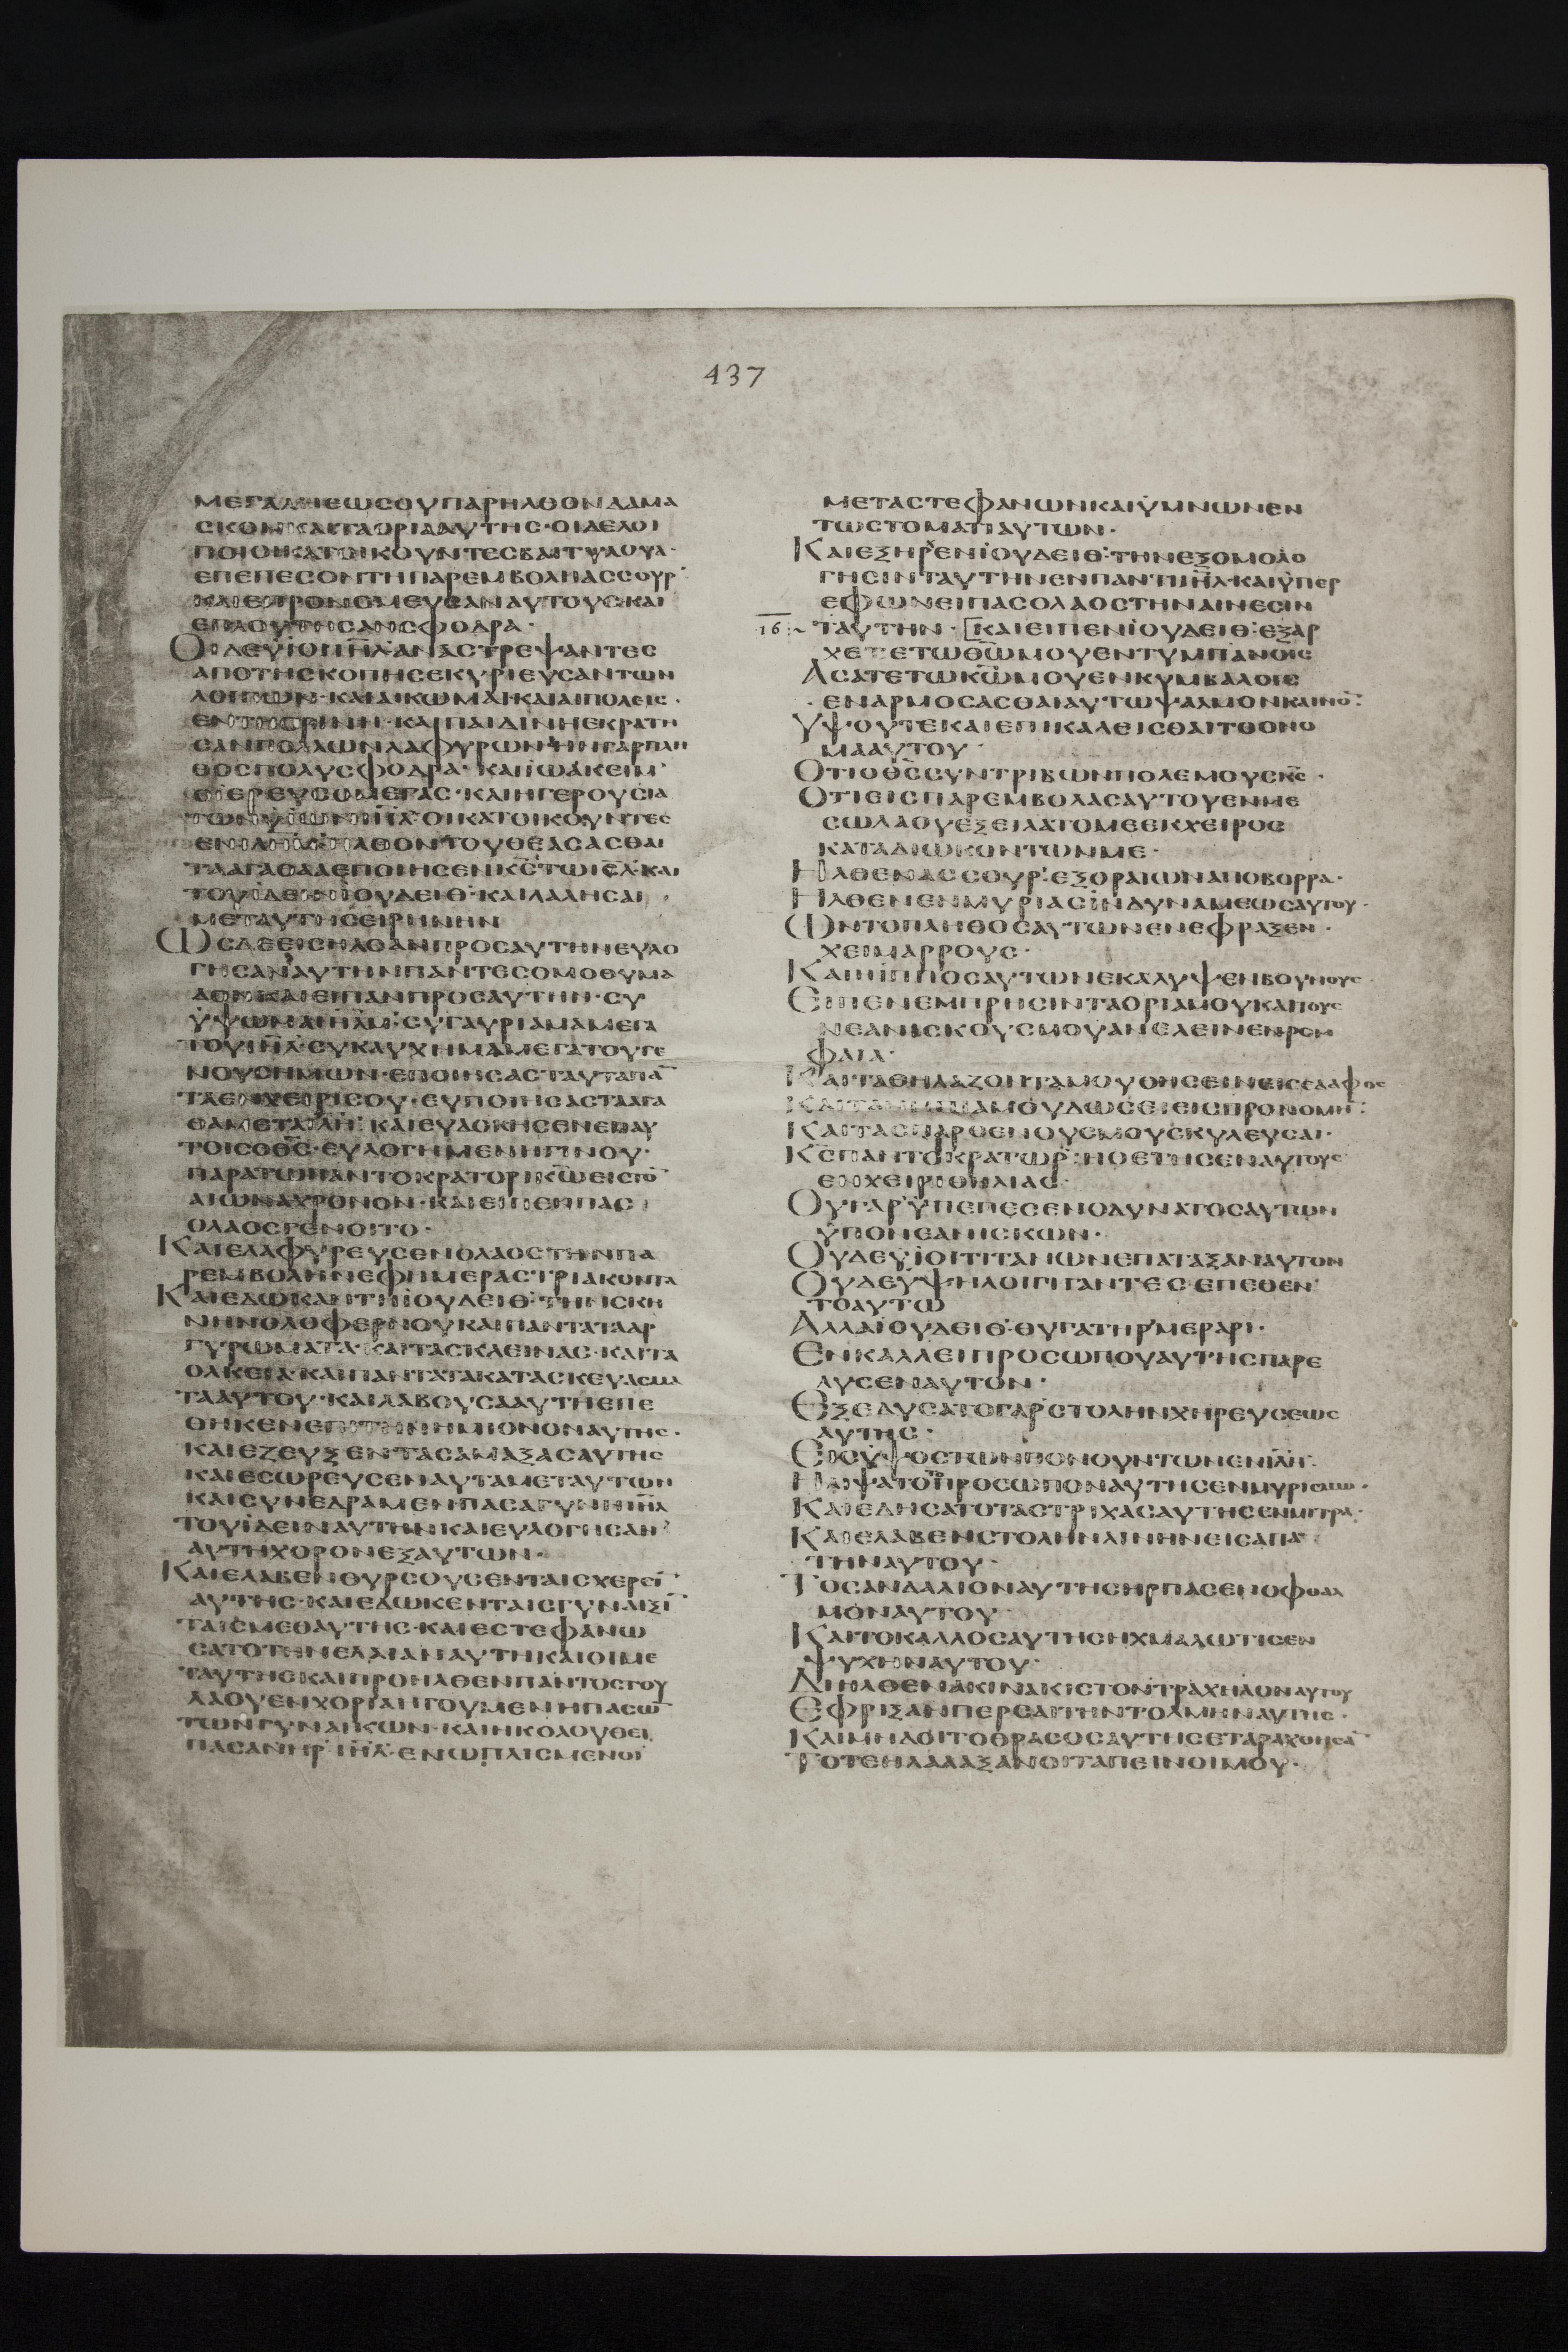 437
ΜΕΓΑΛΗΕΩϹΟΥΠΑΡΗΛΘΟΝΔΑΜΑ
ϹΚΟΝΚΑΙΤΑΟΡΙΑΑΥΤΗϹ·ΟΙΔΕΛΟΙ
ΠΟΙΟΙΚΑΤΟΙΚΟΥΝΤΕϹΒΑΙΤΥΛΟΥΑ·
ΕΠΕΠΕϹΟΝΤΗΠΑΡΕΜΒΟΛΗΑϹϹΟΥΡ·
ΚΑΙΕΠΡΟΝΟΜΕΥϹΑΝΑΥΤΟΥϹΚΑΙ
ΕΠΛΟΥΤΗϹΑΝϹΦΟΔΡΑ·
ΟΙΔΕΫΙΟΙΙΗ̅Λ̅ΑΝΑϹΤΡΕΨΑΝΤΕϹ
ΑΠΟΤΗϹΚΟΠΗϹΕΚΥΡΙΕΥϹΑΝΤΩΝ
ΛΟΙΠΩΝ·ΚΑΙΑΙΚΩΜΑΙ·ΚΑΙΑΙΠΟΛΕΙϹ·
ΕΝΤΗΟΡΙΝΗ·ΚΑΙΠΑΙΔΙΝΗΕΚΡΑΤΗ
ϹΑΝΠΟΛΛΩΝΛΑΦΥΡΩΝΗΝΓΑΡΠΛΗ
ΘΟϹΠΟΛΥϹΦΟΔΡΑ·ΚΑΙΪΩΑΚΕΙΜ
ΟΪΕΡΕΥϹΟΜΕΓΑϹ·ΚΑΙΗΓΕΡΟΥϹΙΑ
ΤΩΝΫΙΩΝΙΗ̅Λ̅ΟΙΚΑΤΟΙΚΟΥΝΤΕϹ
ΕΝΙΛΗ̅Μ̅·ΗΛΘΟΝΤΟΥΘΕΑϹΑϹΘΑΙ
ΤΑΑΓΑΘΑΑΕΠΟΙΗϹΕΝΚ̅Ϲ̅ΤΩΙϹ̅Λ̅·ΚΑΙ
ΤΟΥΪΔΕΙΝΪΟΥΔΕΙΘ·ΚΑΙΛΑΛΗϹΑΙ
ΜΕΤΑΥΤΗϹΕΙΡΗΝΗΝ
ΩϹΔΕΕΙϹΗΛΘΑΝΠΡΟϹΑΥΤΗΝΕΥΛΟ
ΓΗϹΑΝΑΥΤΗΝΠΑΝΤΕϹΟΜΟΘΥΜΑ
ΔΟΝΚΑΙΕΙΠΑΝΠΡΟϹΑΥΤΗΝ·ϹΥ
ΫΨΩΜΑΙΛΗ̅Μ̅·ϹΥΓΑΥΡΙΑΜΑΜΕΓΑ
ΤΟΥΙΗ̅Λ̅·ϹΥΚΑΥΧΗΜΑΜΕΓΑΤΟΥΓΕ
ΝΟΥϹΗΜΩΝ·ΕΠΟΙΗϹΑϹΤΑΥΤΑΠΑ̅
ΤΑΕΝΧΕΙΡΙϹΟΥ·ΕΥΠΟΙΗϹΑϹΤΑΑΓΑ
ΘΑΜΕΤΑΙΗ̅Λ̅·ΚΑΙΕΥΔΟΚΗϹΕΝΕΠΑΥ
ΤΟΙϹΟΘ̅Ϲ̅·ΕΥΛΟΓΗΜΕΝΗΓΙΝΟΥ·
ΠΑΡΑΤΩΠΑΝΤΟΚΡΑΤΟΡΙΚ̅Ω̅ΕΙϹΤΟ̅
ΑΙΩΝΑΧΡΟΝΟΝ·ΚΑΙΕΙΠΕΝΠΑϹ
ΟΛΑΟϹΓΕΝΟΙΤΟ·
ΚΑΙΕΛΑΦΥΡΕΥϹΕΝΟΛΑΟϹΤΗΝΠΑ
ΡΕΜΒΟΛΗΝΕΦΗΜΕΡΑϹΤΡΙΑΚΟΝΤΑ
ΚΑΙΕΔΩΚΑΝΤΗΙΟΥΔΕΙΘ·ΤΗΝϹΚΗ
ΝΗΝΟΛΟΦΕΡΝΟΥΚΑΙΠΑΝΤΑΤΑΑΡ
ΓΥΡΩΜΑΤΑ·ΚΑΙΤΑϹΚΛΕΙΝΑϹ·ΚΑΙΤΑ
ΟΛΚΕΙΑ·ΚΑΙΠΑΝΤΑΤΑΚΑΤΑϹΚΕΥΑϹΜΑ
ΤΑΑΥΤΟΥ·ΚΑΙΛΑΒΟΥϹΑΑΥΤΗΕΠΕ
ΘΗΚΕΝΕΠΙΤΗΝΗΜΙΟΝΟΝΑΥΤΗϹ·
ΚΑΙΕΖΕΥΞΕΝΤΑϹΑΜΑΞΑϹΑΥΤΗϹ
ΚΑΙΕϹΩΡΕΥϹΕΝΑΥΤΑΜΕΤΑΥΤΩΝ
ΚΑΙϹΥΝΕΔΡΑΜΕΝΠΑϹΑΓΥΝΗΙΗ̅Λ̅
ΤΟΥΪΔΕΙΝΑΥΤΗΝΚΑΙΕΥΛΟΓΗϹΑΝ
ΑΥΤΗΧΟΡΟΝΕΞΑΥΤΩΝ·
ΚΑΙΕΛΑΒΕΝΘΥΡϹΟΥϹΕΝΤΑΙϹΧΕΡϹΙ̅
ΑΥΤΗϹ·ΚΑΙΕΔΩΚΕΝΤΑΙϹΓΥΝΑΙΞΙ̅
ΤΑΙϹΜΕΘΑΥΤΗϹ·ΚΑΙΕϹΤΕΦΑΝΩ
ϹΑΤΟΤΗΝΕΛΑΙΑΝΑΥΤΗΚΑΙΟΙΜΕ
ΤΑΥΤΗϹΚΑΙΠΡΟΗΛΘΕΝΠΑΝΤΟϹΤΟΥ
ΛΑΟΥΕΝΧΟΡΙΑΗΓΟΥΜΕΝΗΠΑϹΩ̅
ΤΩΝΓΥΝΑΙΚΩΝ·ΚΑΙΗΚΟΛΟΥΘΕΙ
ΠΑϹΑΝΗΡΙΗ̅Λ̅·ΕΝΩΠΛΙϹΜΕΝΟΙ
ΜΕΤΑϹΤΕΦΑΝΩΝΚΑΙΫΜΝΩΝΕΝ
ΤΩϹΤΟΜΑΤΙΑΥΤΩΝ·
ΚΑΙΕΞΗΡΕΝΪΟΥΔΕΙΘ·ΤΗΝΕΞΟΜΟΛΟ
ΓΗϹΙΝΤΑΥΤΗΝΕΝΠΑΝΤΙΙΗ̅Λ̅·ΚΑΙΫΠΕΡ
ΕΦΩΝΕΙΠΑϹΟΛΑΟϹΤΗΝΑΙΝΕϹΙΝ
16:~ ΤΑΥΤΗΝ·[ΚΑΙΕΙΠΕΝΪΟΥΔΕΙΘ·ΕΞΑΡ
ΧΕΤΕΤΩΘ̅Ω̅ΜΟΥΕΝΤΥΜΠΑΝΟΙϹ
ΑϹΑΤΕΤΩΚ̅Ω̅ΜΟΥΕΝΚΥΜΒΑΛΟΙϹ
ΕΝΑΡΜΟϹΑϹΘΑΙΑΥΤΩΨΑΛΜΟΝΚΑΙΝΟ̅·
ΥΨΟΥΤΕΚΑΙΕΠΙΚΑΛΕΙϹΘΑΙΤΟΟΝΟ
ΜΑΑΥΤΟΥ·
ΟΤΙΟΘ̅Ϲ̅ϹΥΝΤΡΙΒΩΝΠΟΛΕΜΟΥϹΚ̅Ϲ̅·
ΟΤΙΕΙϹΠΑΡΕΜΒΟΛΑϹΑΥΤΟΥΕΝΜΕ
ϹΩΛΑΟΥΕΞΕΙΛΑΤΟΜΕΕΚΧΕΙΡΟϹ
ΚΑΤΑΔΙΩΚΟΝΤΩΝΜΕ·
ΗΛΘΕΝΑϹϹΟΥΡ·ΕΞΟΡΑΙΩΝΑΠΟΒΟΡΡΑ·
ΗΛΘΕΝΕΝΜΥΡΙΑϹΙΝΔΥΝΑΜΕΩϹΑΥΤΟΥ·
ΩΝΤΟΠΛΗΘΟϹΑΥΤΩΝΕΝΕΦΡΑΞΕΝ·
ΧΕΙΜΑΡΡΟΥϹ·
ΚΑΙΗΙΠΠΟϹΑΥΤΩΝΕΚΑΛΥΨΕΝΒΟΥΝΟΥϹ
ΕΙΠΕΝΕΜΠΡΗϹΙΝΤΑΟΡΙΑΜΟΥΚΑΙΤΟΥϹ
ΝΕΑΝΙϹΚΟΥϹΜΟΥΑΝΕΛΕΙΝΕΝΡΟΜ
ΦΑΙΑ·
ΚΑΙΤΑΘΗΛΑΖΟΝΤΑΜΟΥΘΗϹΕΙΝΕΙϹΕΔΑΦΟϹ
ΚΑΙΤΑΝΗΠΙΑΜΟΥΔΩϹΕΙΕΙϹΠΡΟΝΟΜΗ̅·
ΚΑΙΤΑϹΠΑΡΘΕΝΟΥϹΜΟΥϹΚΥΛΕΥϹΑΙ·
Κ̅Ϲ̅ΠΑΝΤΟΚΡΑΤΩΡ·ΗΘΕΤΗϹΕΝΑΥΤΟΥϹ
ΕΝΧΕΙΡΙΘΗΛΙΑϹ·
ΟΥΓΑΡΫΠΕΠΕϹΕΝΟΔΥΝΑΤΟϹΑΥΤΩΝ
ΫΠΟΝΕΑΝΙϹΚΩΝ·
ΟΥΔΕΫΙΟΙΤΙΤΑΝΩΝΕΠΑΤΑΞΑΝΑΥΤΟΝ
ΟΥΔΕΥΨΗΛΟΙΓΙΓΑΝΤΕϹ·ΕΠΕΘΕΝ
ΤΟΑΥΤΩ
ΑΛΛΑΪΟΥΔΕΙΘ·ΘΥΓΑΤΗΡΜΕΡΑΡΙ·
ΕΝΚΑΛΛΕΙΠΡΟϹΩΠΟΥΑΥΤΗϹΠΑΡΕ
ΛΥϹΕΝΑΥΤΟΝ·
ΕΞΕΔΥϹΑΤΟΓΑΡϹΤΟΛΗΝΧΗΡΕΥϹΕΩϹ
ΑΥΤΗϹ·
ΕΙϹΫΨΟϹΤΩΝΠΟΝΟΥΝΤΩΝΕΝΙΗ̅Λ̅·
ΗΛΙΨΑΤΟΤΟΠΡΟϹΩΠΟΝΑΥΤΗϹΕΝΜΥΡΙϹΜΩ·
ΚΑΙΕΔΗϹΑΤΟΤΑϹΤΡΙΧΑϹΑΥΤΗϹΕΝΜΙΤΡΑ·
ΚΑΙΕΛΑΒΕΝϹΤΟΛΗΝΛΙΝΗΝΕΙϹΑΠΑ
ΤΗΝΑΥΤΟΥ·
ΤΟϹΑΝΔΑΛΙΟΝΑΥΤΗϹΗΡΠΑϹΕΝΟΦΘΑΛ
ΜΟΝΑΥΤΟΥ·
ΚΑΙΤΟΚΑΛΛΟϹΑΥΤΗϹΗΧΜΑΛΩΤΙϹΕΝ
ΨΥΧΗΝΑΥΤΟΥ·
ΔΙΗΛΘΕΝΑΚΙΝΑΚΙϹΤΟΝΤΡΑΧΗΛΟΝΑΥΤΟΥ
ΕΦΡΙΞΑΝΠΕΡϹΑΙΤΗΝΤΟΛΜΗΝΑΥΤΗϹ·
ΚΑΙΜΗΔΟΙΤΟΘΡΑϹΟϹΑΥΤΗϹΕΤΑΡΑΧΘΗϹΑ̅
ΤΟΤΕΗΛΑΛΑΞΑΝΟΙΤΑΠΕΙΝΟΙΜΟΥ·